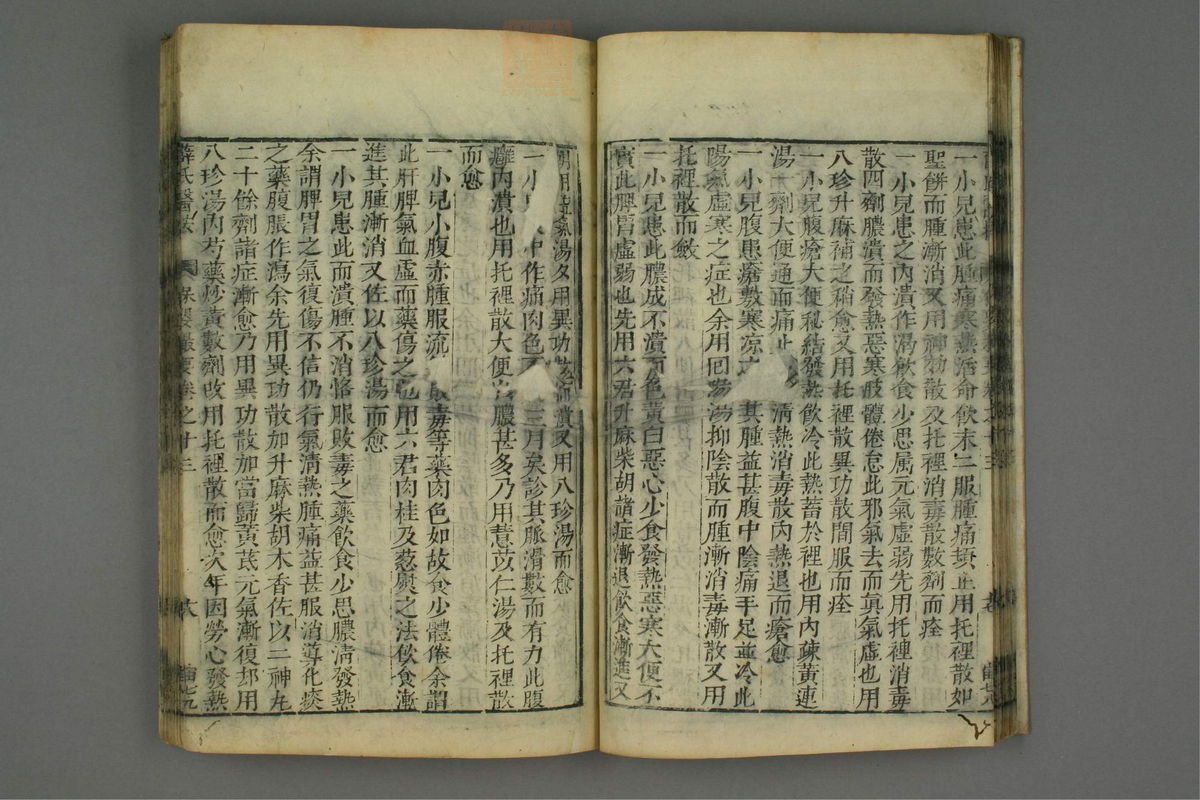 一小兒患此腫痛寒熱活命飲末二服腫痛頓止用托裡散如
聖餅而腫漸消又用神功散及托裡消毒散數劑而痊
一小兒患之內潰作渴飲食少思屬元氣虛弱先用托裡消毒
散四劑膿潰而發熱惡寒肢體倦怠此邪氣去而真氣虛也用
八珍升麻補之稍愈又用托裡散異功散間服而痊
一小兒腹瘡大便秘結發熱飲冷此熱蓄於裡也用內疎黃連
湯一劑大便通而痛止 清熱消毒散內熱退而瘡愈
一小兒腹患瘡敷寒凉 其腫益甚腹中陰痛手足並冷此
陽氣虛寒之症也余用回陽湯抑陰散而腫漸消毒漸散又用
托裡散而斂
一小兒患此膿成不潰面色黃白惡心少食發熱惡寒大便不
實此脾胃虛弱也先用六君升麻柴胡諸症漸退飲食漸進又
朝用 氣湯夕用異功散 潰又用八珍湯而愈
一小 中作痛肉色不 三月矣診其脈滑數而有力此腹
癰內潰也用托裡散大便 膿甚多乃用薏苡仁湯及托裡散
而愈
一小兒小腹赤腫服流 毒等藥肉色如故食少體倦余謂
此肝脾氣血虛而藥傷之也用六君肉桂及葱熨之法飲食漸
進其腫漸消又佐以八珍湯而愈
一小兒患此而潰腫不消恪服敗毒之藥飲食少思膿清發熱
余謂脾胃之氣復傷不信仍行氣清熱腫痛益甚服消導化痰
之藥腹脹作瀉余先用異功散加升麻柴胡木香佐以二神丸
二十餘劑諸症漸愈乃用異功散加當歸黃芪元氣漸復却用
八珍湯內芍藥炒黃數劑改用托裡散而愈次年因勞心發熱
薛氏醫案 保嬰撮要卷之十三